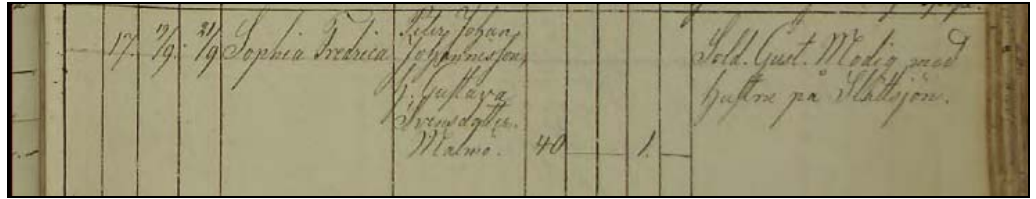 17. 19/9. 21/9 Sophia Fredrica
Peter Johan
Johannesson,
h. Gustava
Svensdotter.
Malmö. 40 1.
Sold. Gust. Modig med
hustru på Slättsjön.